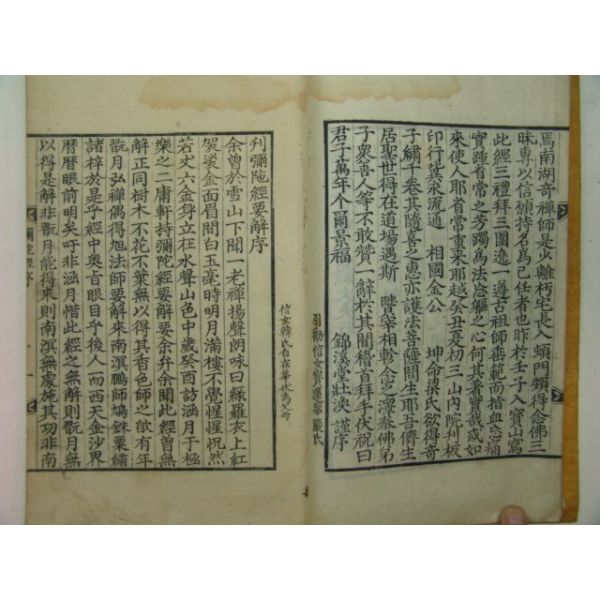 焉南湖奇禪師是少離朽宅長入頞門頗得念佛三
昧專以信願持名爲己任者也昨於壬子入寶山寫
此經三禮拜三圍遶一遵古祖師垂範而指血忘痛
實踵省常之芳躅爲法忘軀之心何其著實哉或如
來使人耶省常重來耶越癸丑夏初三山內院刋板
印行冀永流通 相國金公 坤命梁氏欲得奇
子繡千卷其隨喜之惠亦護法菩薩間生耶吾儕生
居聖世得在道場遇斯 賢宰相幹余之深泰佛弟
子衆善人等不敢贊一辭於其間稽首拜手伏祝曰
君子萬年介爾景福 錦溪堂壯泱 謹序
引勸信女 嚴氏
信女韓氏自在華伏爲父母
刋彌陁經要解序
余曾於雪山下聞一老禪揚聲朗咏曰綠羅衣上紅
袈裟金面眉間白玉毫時明月滿樓不覺惺惺怳然
若丈六金身立在水聲山色中歲癸酉訪涵月于極
樂之二庸軒持彌陁經要解要余弁余聞此經曾無
解正同樹木不花不葉無以得其香色師之歆有年
翫月弘禪偶得旭法師要解來南溟鵬師鳩銖粟繡
諸梓於是乎經中奧旨眼目乎後人一而西天金沙界
曆曆眼前明矣吁非涵月惜此經之無解則翫月無
以得是解非翫月能得來則南溟無處施其功非南
彌陁經序 一